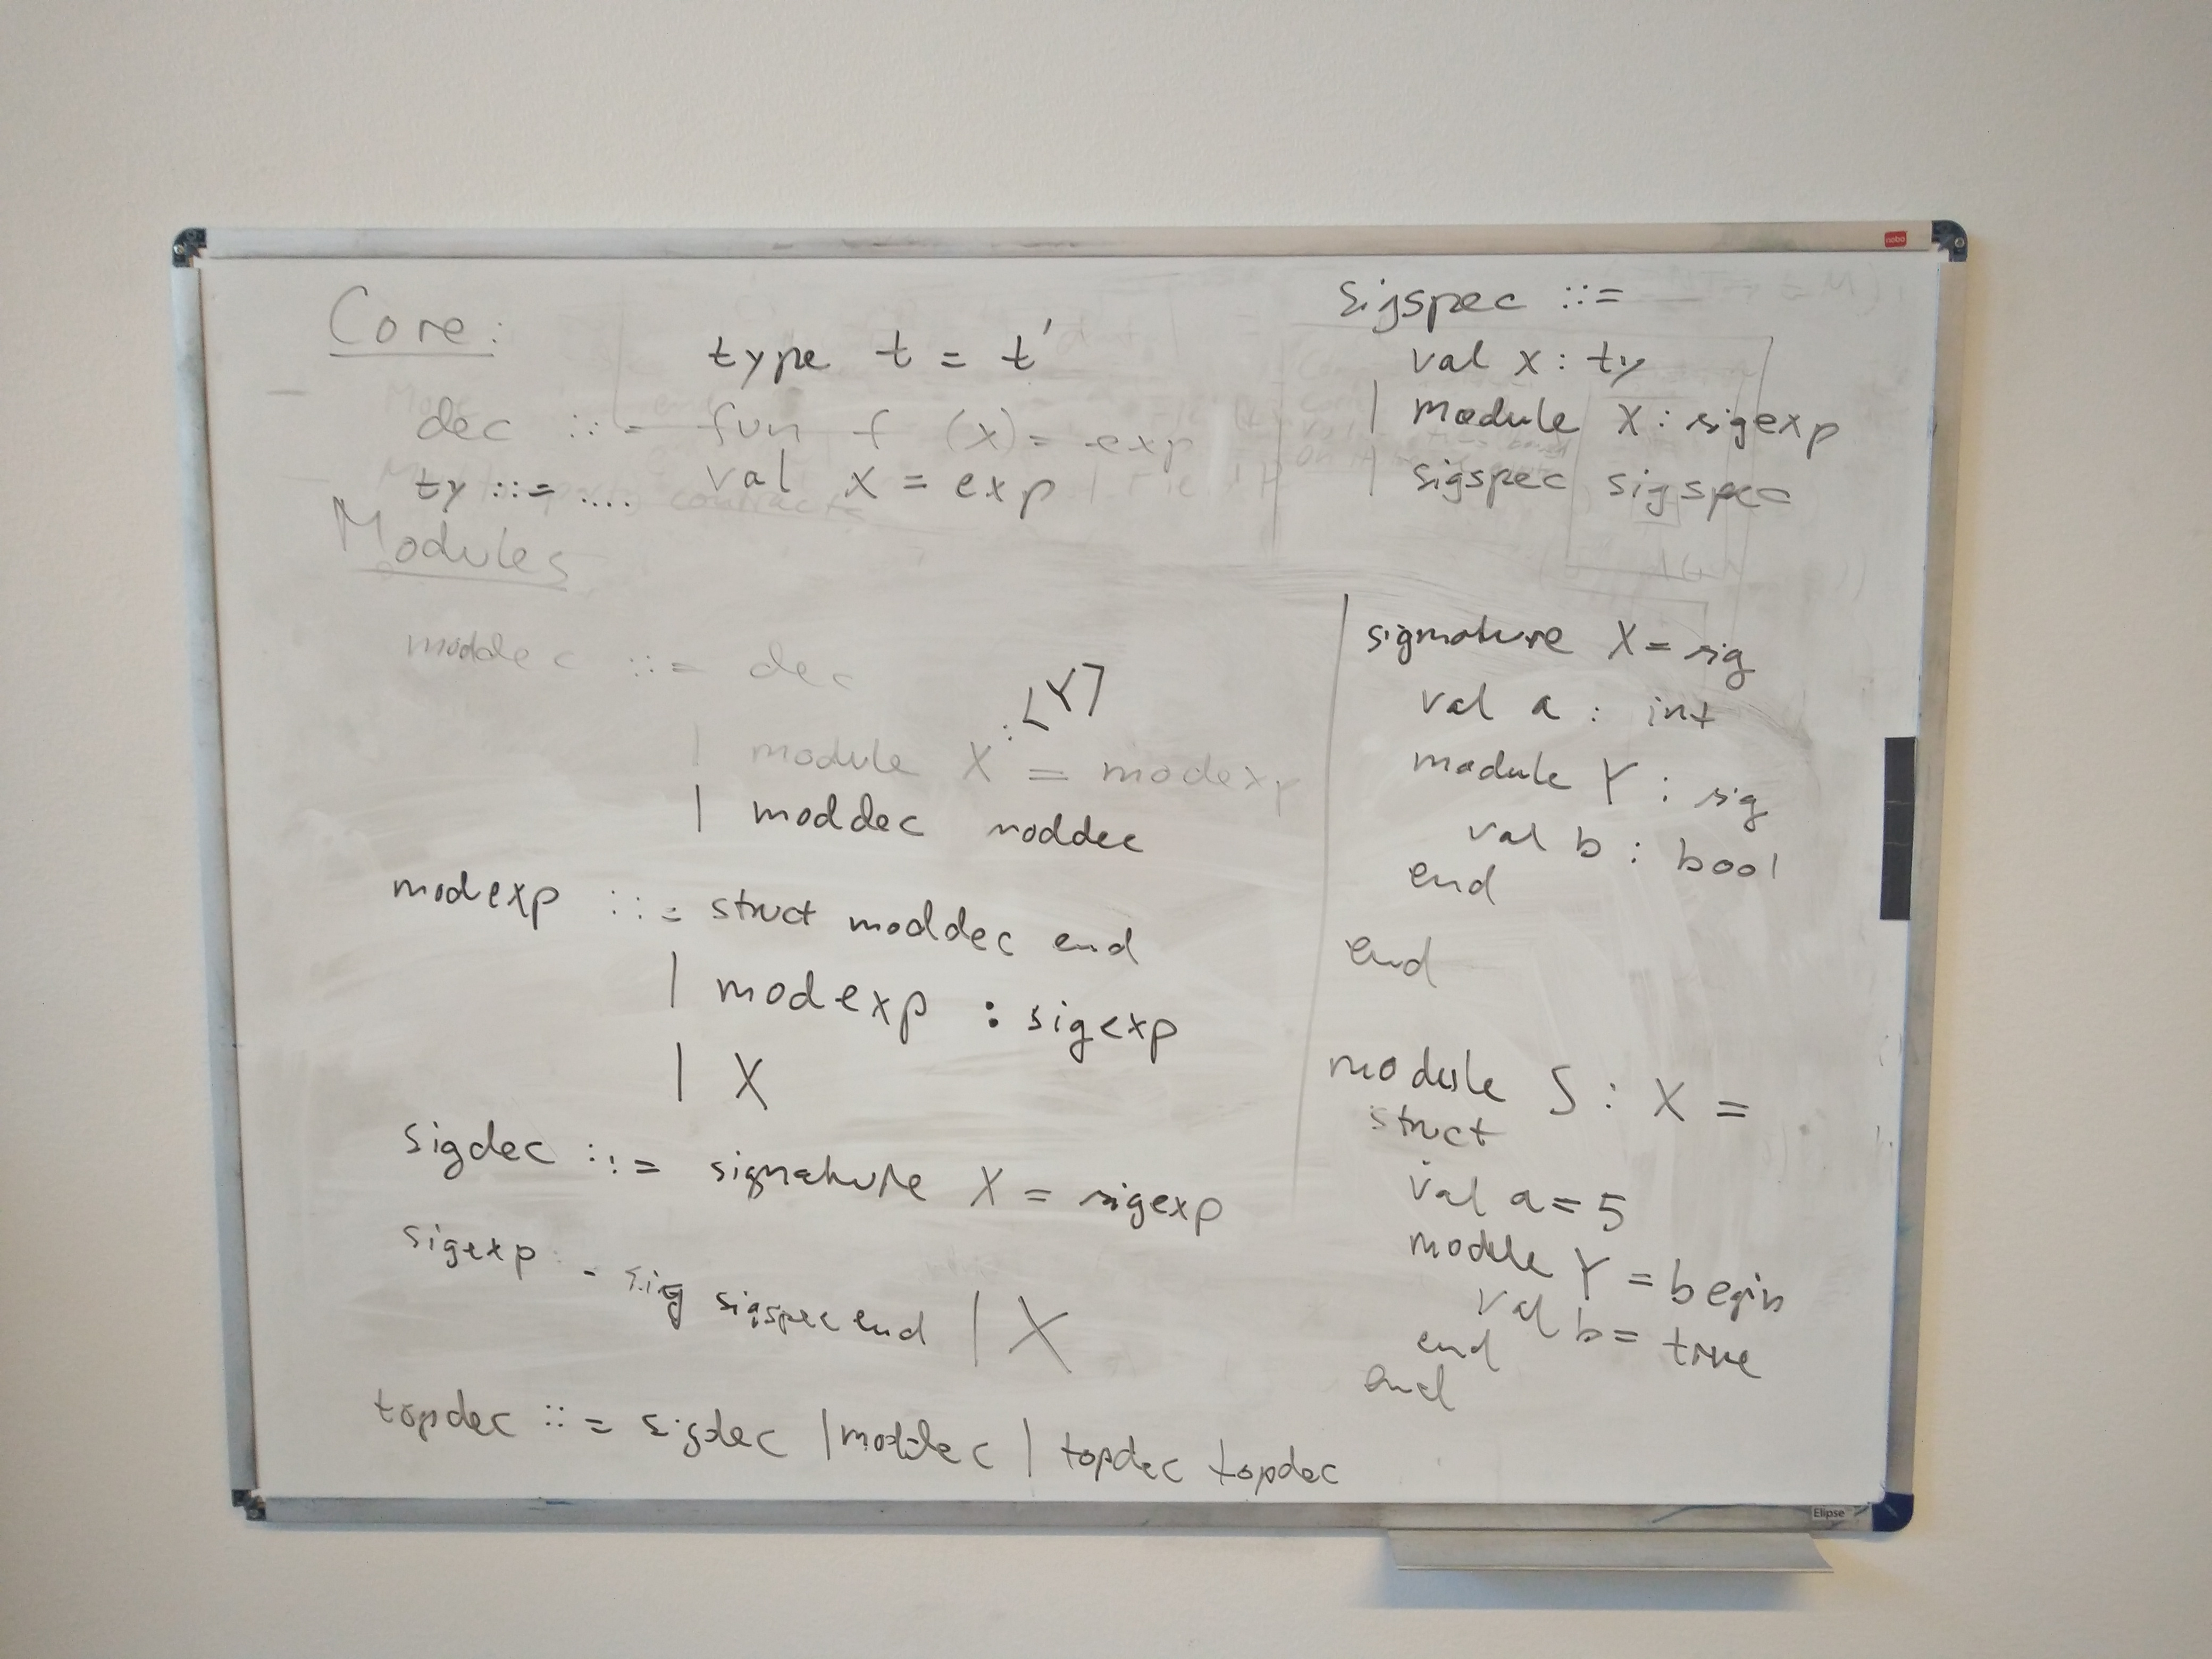 Core:
type t = t'
dec ::= fun f (x) = exp
ty ::= .... val x = exp
Modules
moddec ::= dec
: [Y]
| module X = modexp
| moddec moddec
modexp ::= struct moddec end
| modexp : sigexp
| X
sigdec ::= signature X = sigexp
sigexp = sig sigspec end | X
topdec ::= sigdec | moddec | topdec topdec
sigspec ::=
val x : ty
| module X : sigexp
| sigspec sigspec
signature X = sig
val a : int
module Y : sig
val b : bool
end
end
module S : X =
struct
val a = 5
module Y = begin
val b = true
end
end
nobo
Elipse